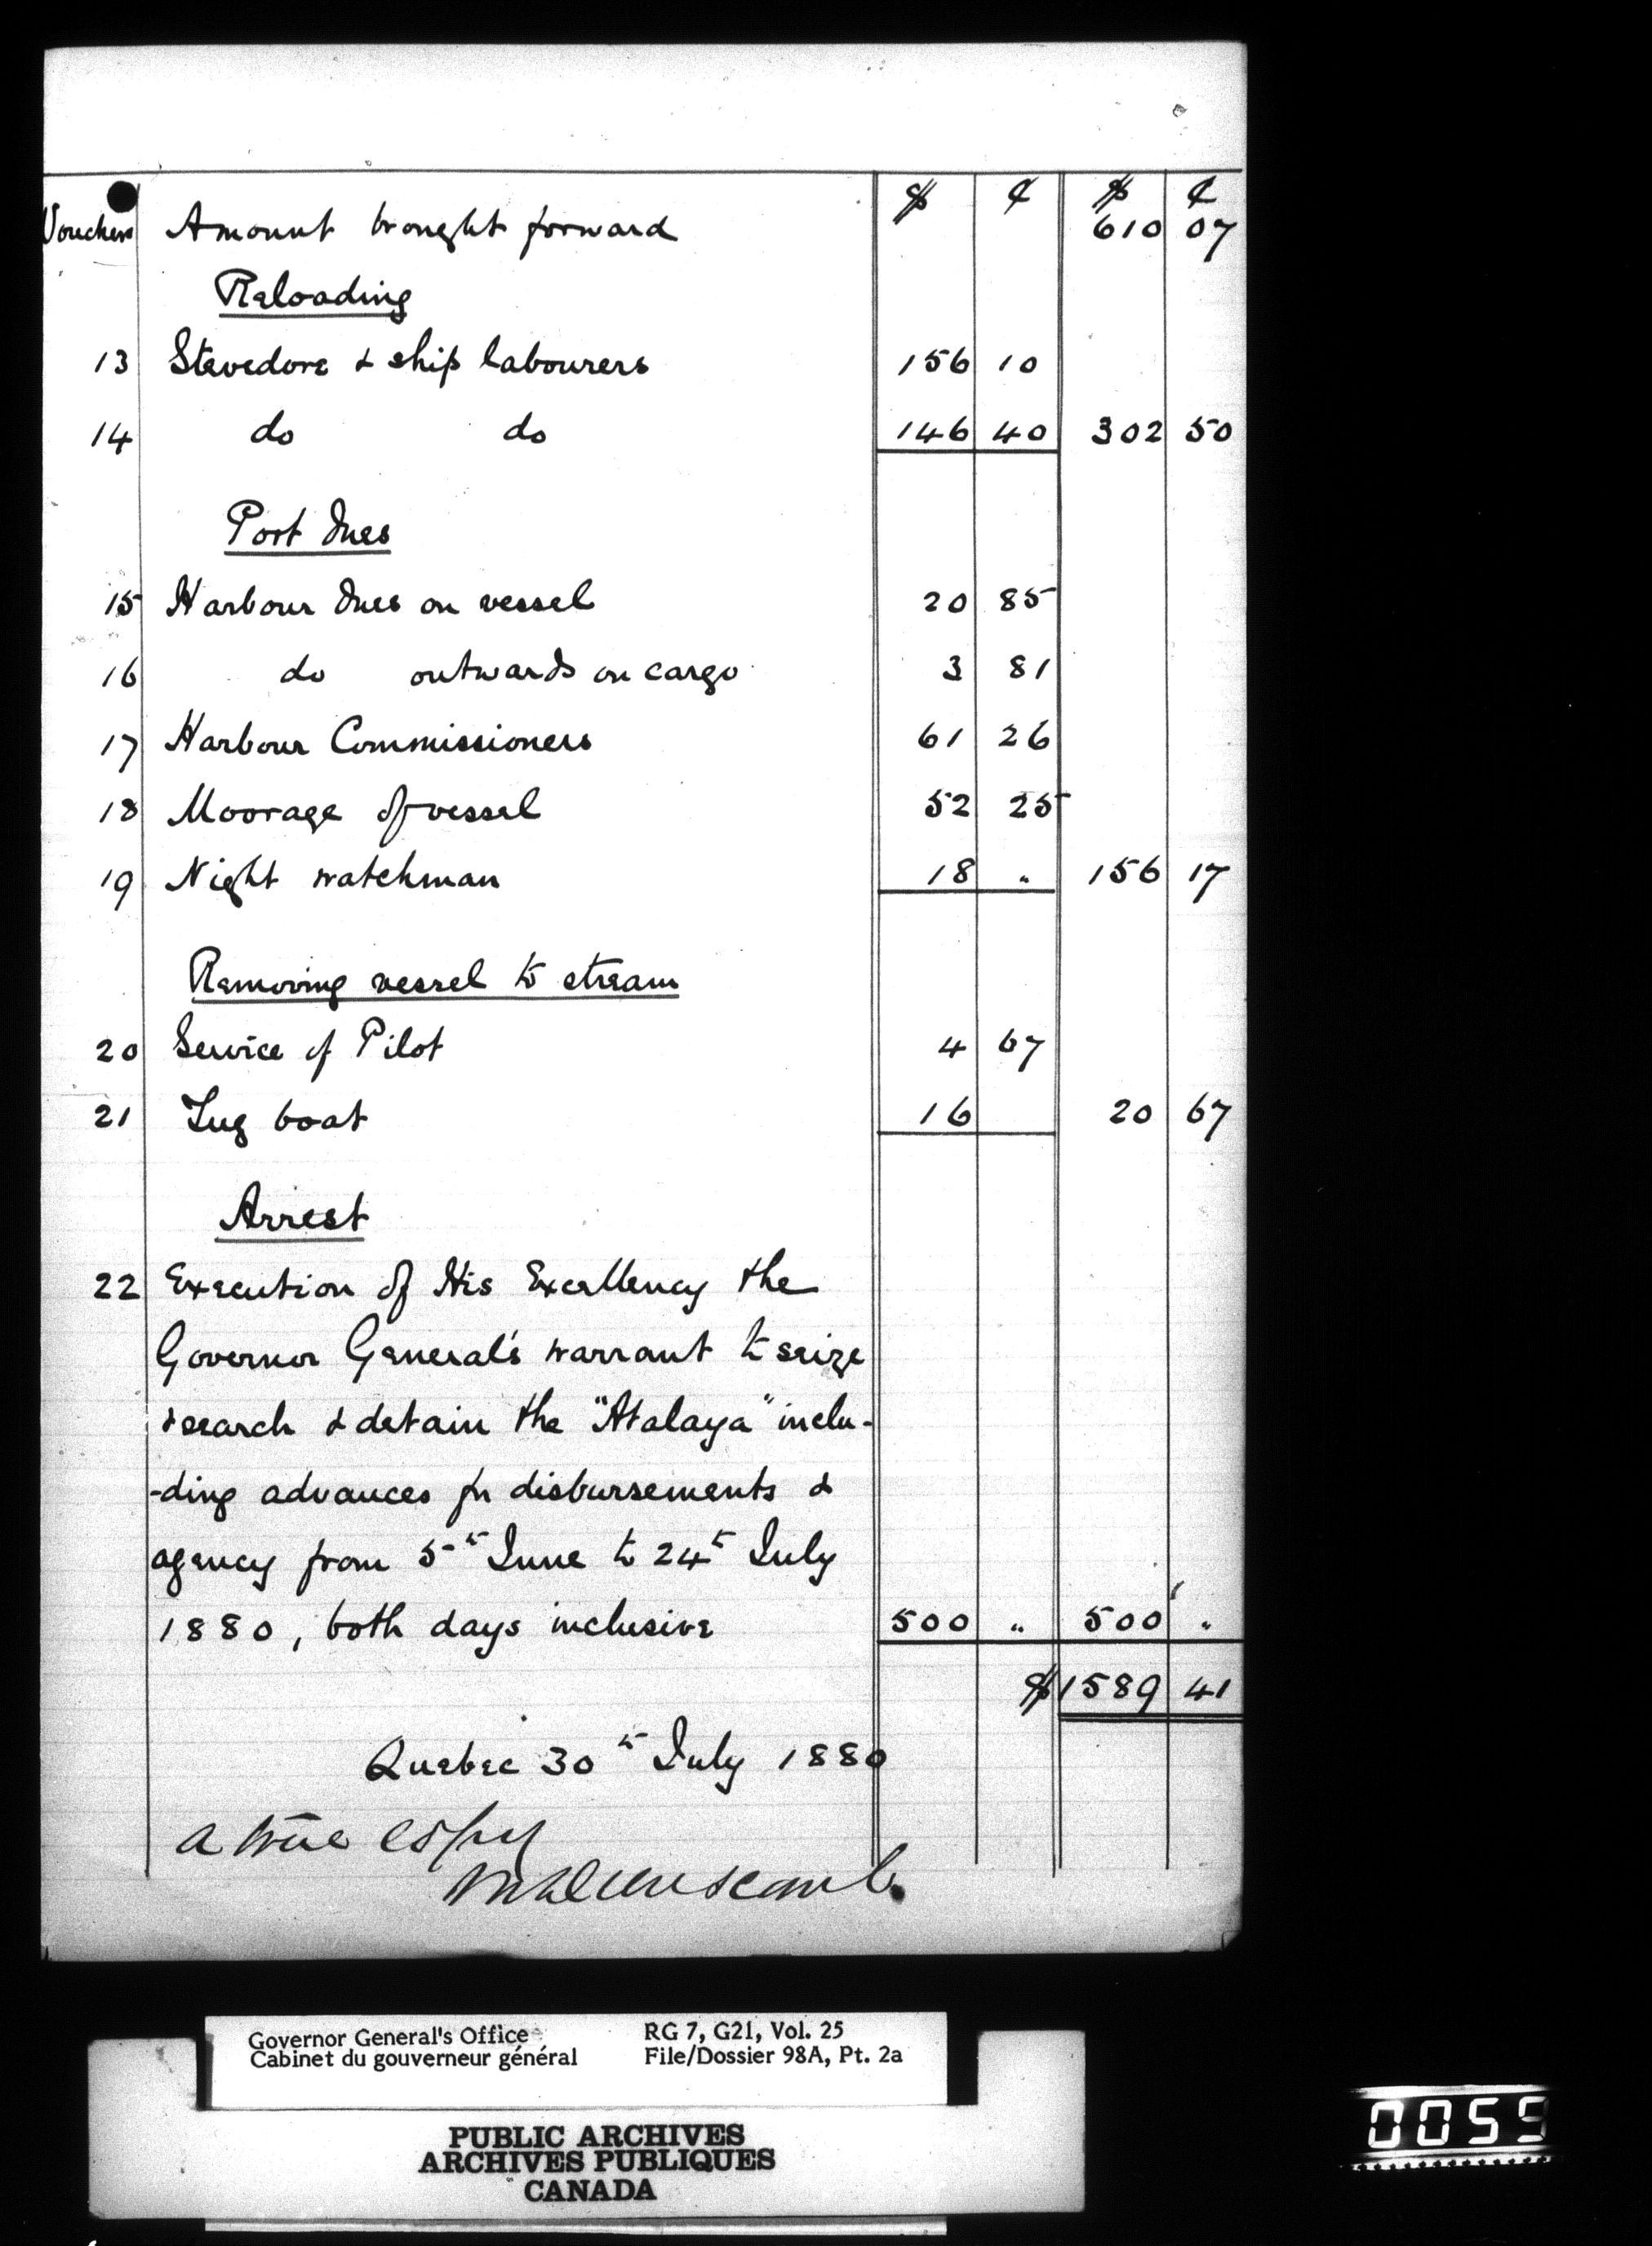 $ ¢ $ ¢
Vouchers Amount brought forward 610 07
Reloading
13 Stevedore & ship labourers 156 10
14 do do 146 40 302 50
Port dues
15 Harbour dues on vessel 20 85
16 do outwards on cargo 3 81
17 Harbour Commissioners 61 26
18 Moorage of vessel 52 25
19 Night watchman 18 " 156 17
Removing vessel to stream
20 Service of Pilot 4 67
21 Tug boat 16 20 67
Arrest
22 Execution of His Excellency the
Governor General's warrant to seize
& search & detain the "Atalaya" inclu-
-ding advances for disbursements &
agency from 5th June to 24th July
1880, both days inclusive 500 " 500 "
$1589 41
Quebec 30th July 1880
a true copy
Governor General's Office RG 7, G21, Vol. 25
Cabinet du gouverneur général File/Dossier 98A, Pt. 2a
PUBLIC ARCHIVES
ARCHIVES PUBLIQUES
CANADA
0055